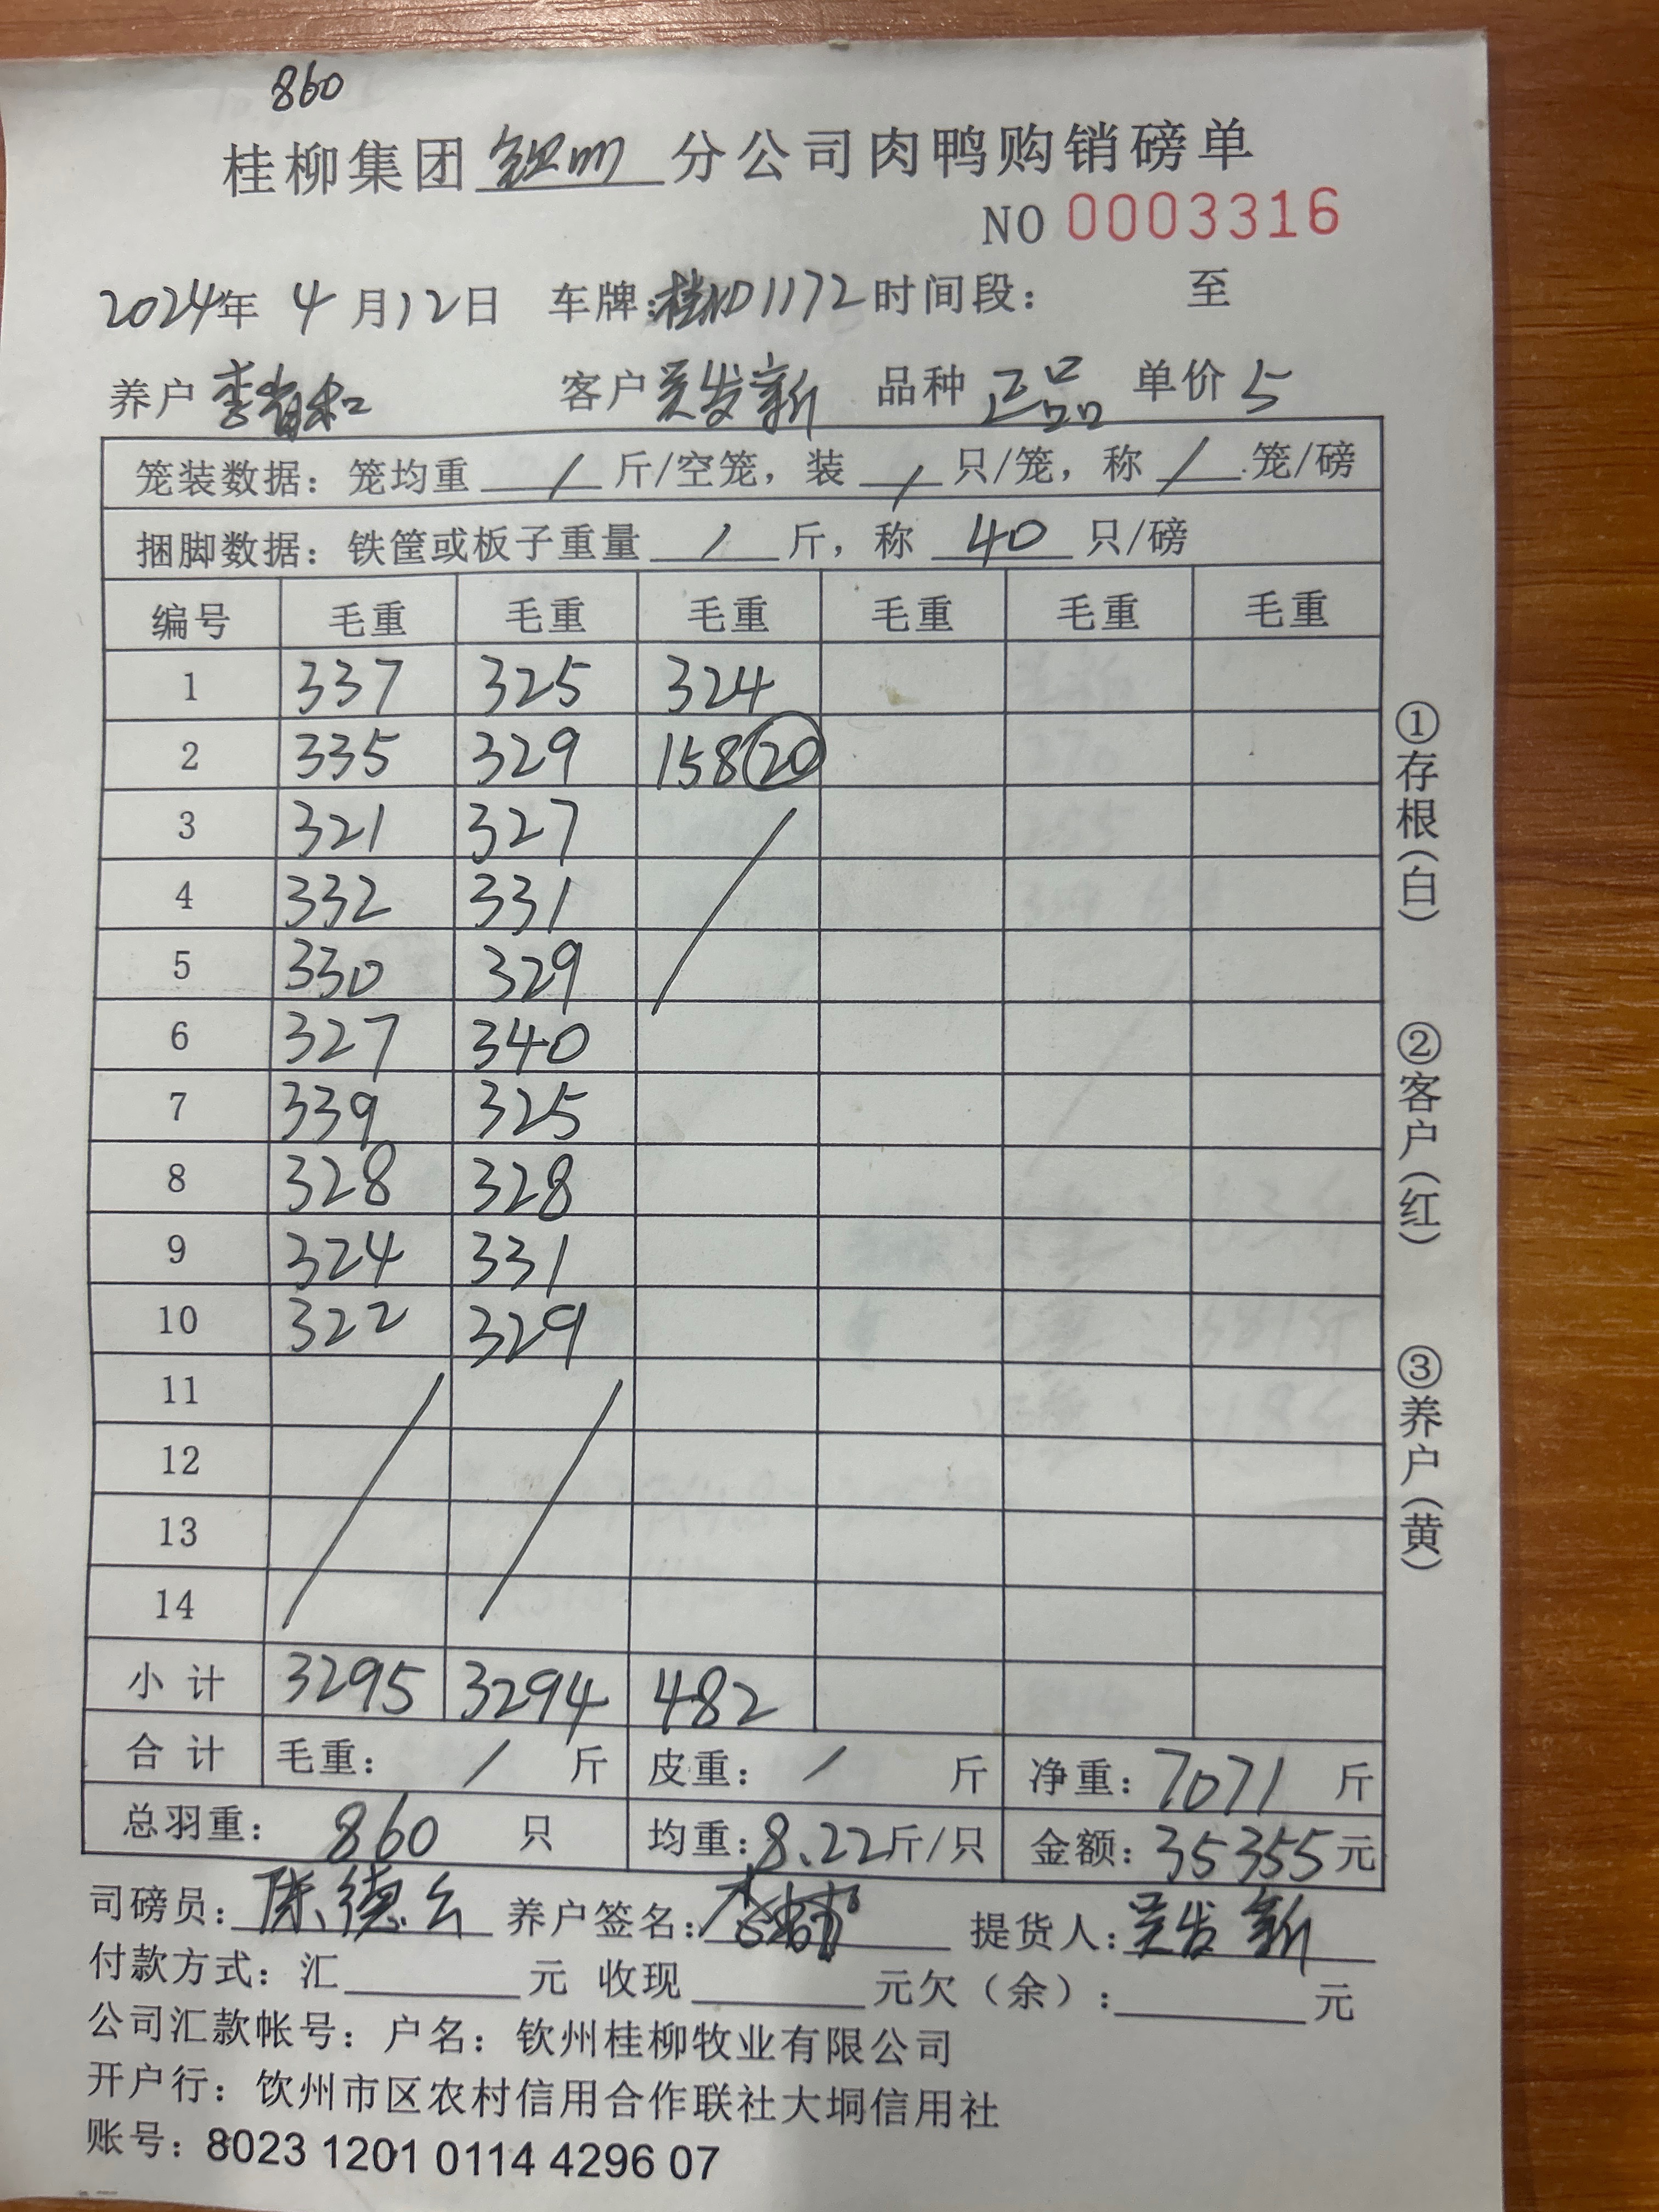 860
桂柳集团 钦州 分公司肉鸭购销磅单
NO 0003316
2024年 4月12日 车牌:桂ND1172 时间段: 至
养户 李 和 客户 吴发新 品种 正品 单价 5
笼装数据:笼均重 / 斤/空笼,装 / 只/笼,称 / 笼/磅
捆脚数据:铁筐或板子重量 / 斤,称 40 只/磅
编号 毛重 毛重 毛重 毛重 毛重 毛重
1 337 325 324
2 335 329 158 20
3 321 327 /
4 332 331
5 330 329
6 327 340
7 339 325
8 328 328
9 324 331
10 322 329
11 / /
12
13
14
小计 3295 3294 482
合计 毛重: / 斤 皮重: / 斤 净重:7071 斤
总羽重: 860 只 均重:8.22斤/只 金额:35355元
司磅员:陈德云 养户签名: 提货人:吴发新
付款方式:汇 元 收现 元欠(余): 元
公司汇款帐号:户名:钦州桂柳牧业有限公司
开户行:钦州市区农村信用合作联社大垌信用社
账号:8023 1201 0114 4296 07
①存根(白)
②客户(红)
③养户(黄)